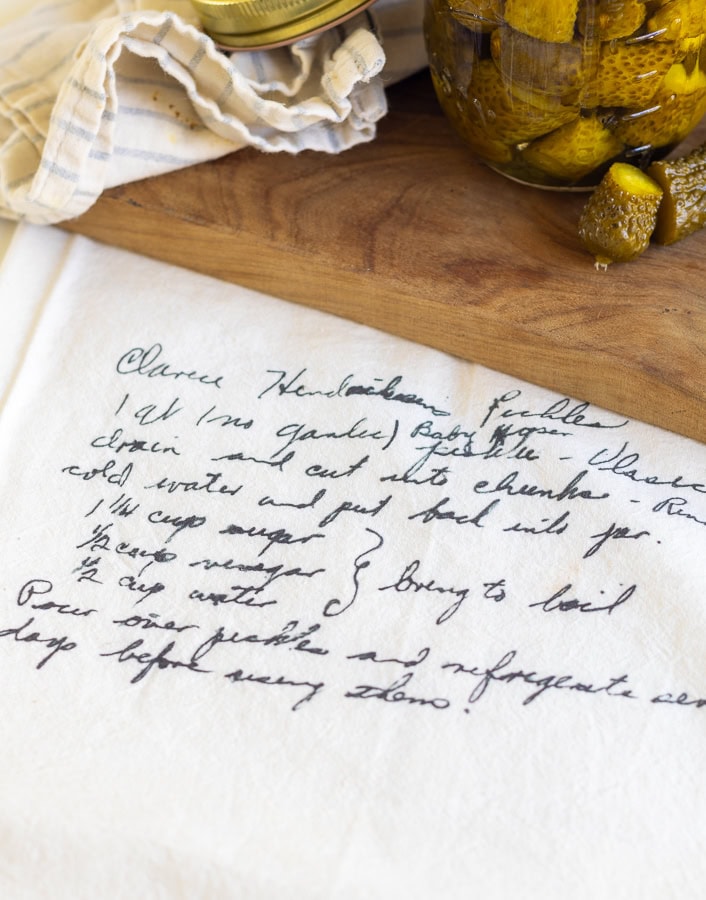 Clarice Hendricksens Pickles
1 qt (no garlic) Baby pickle - Vlasic
drain and cut into chunks -
cold water and put back into jar.
1 1/4 cup sugar
1/2 cup vinegar } bring to boil
1/2 cup water
Pour over pickles and refrigerate
days before using them.